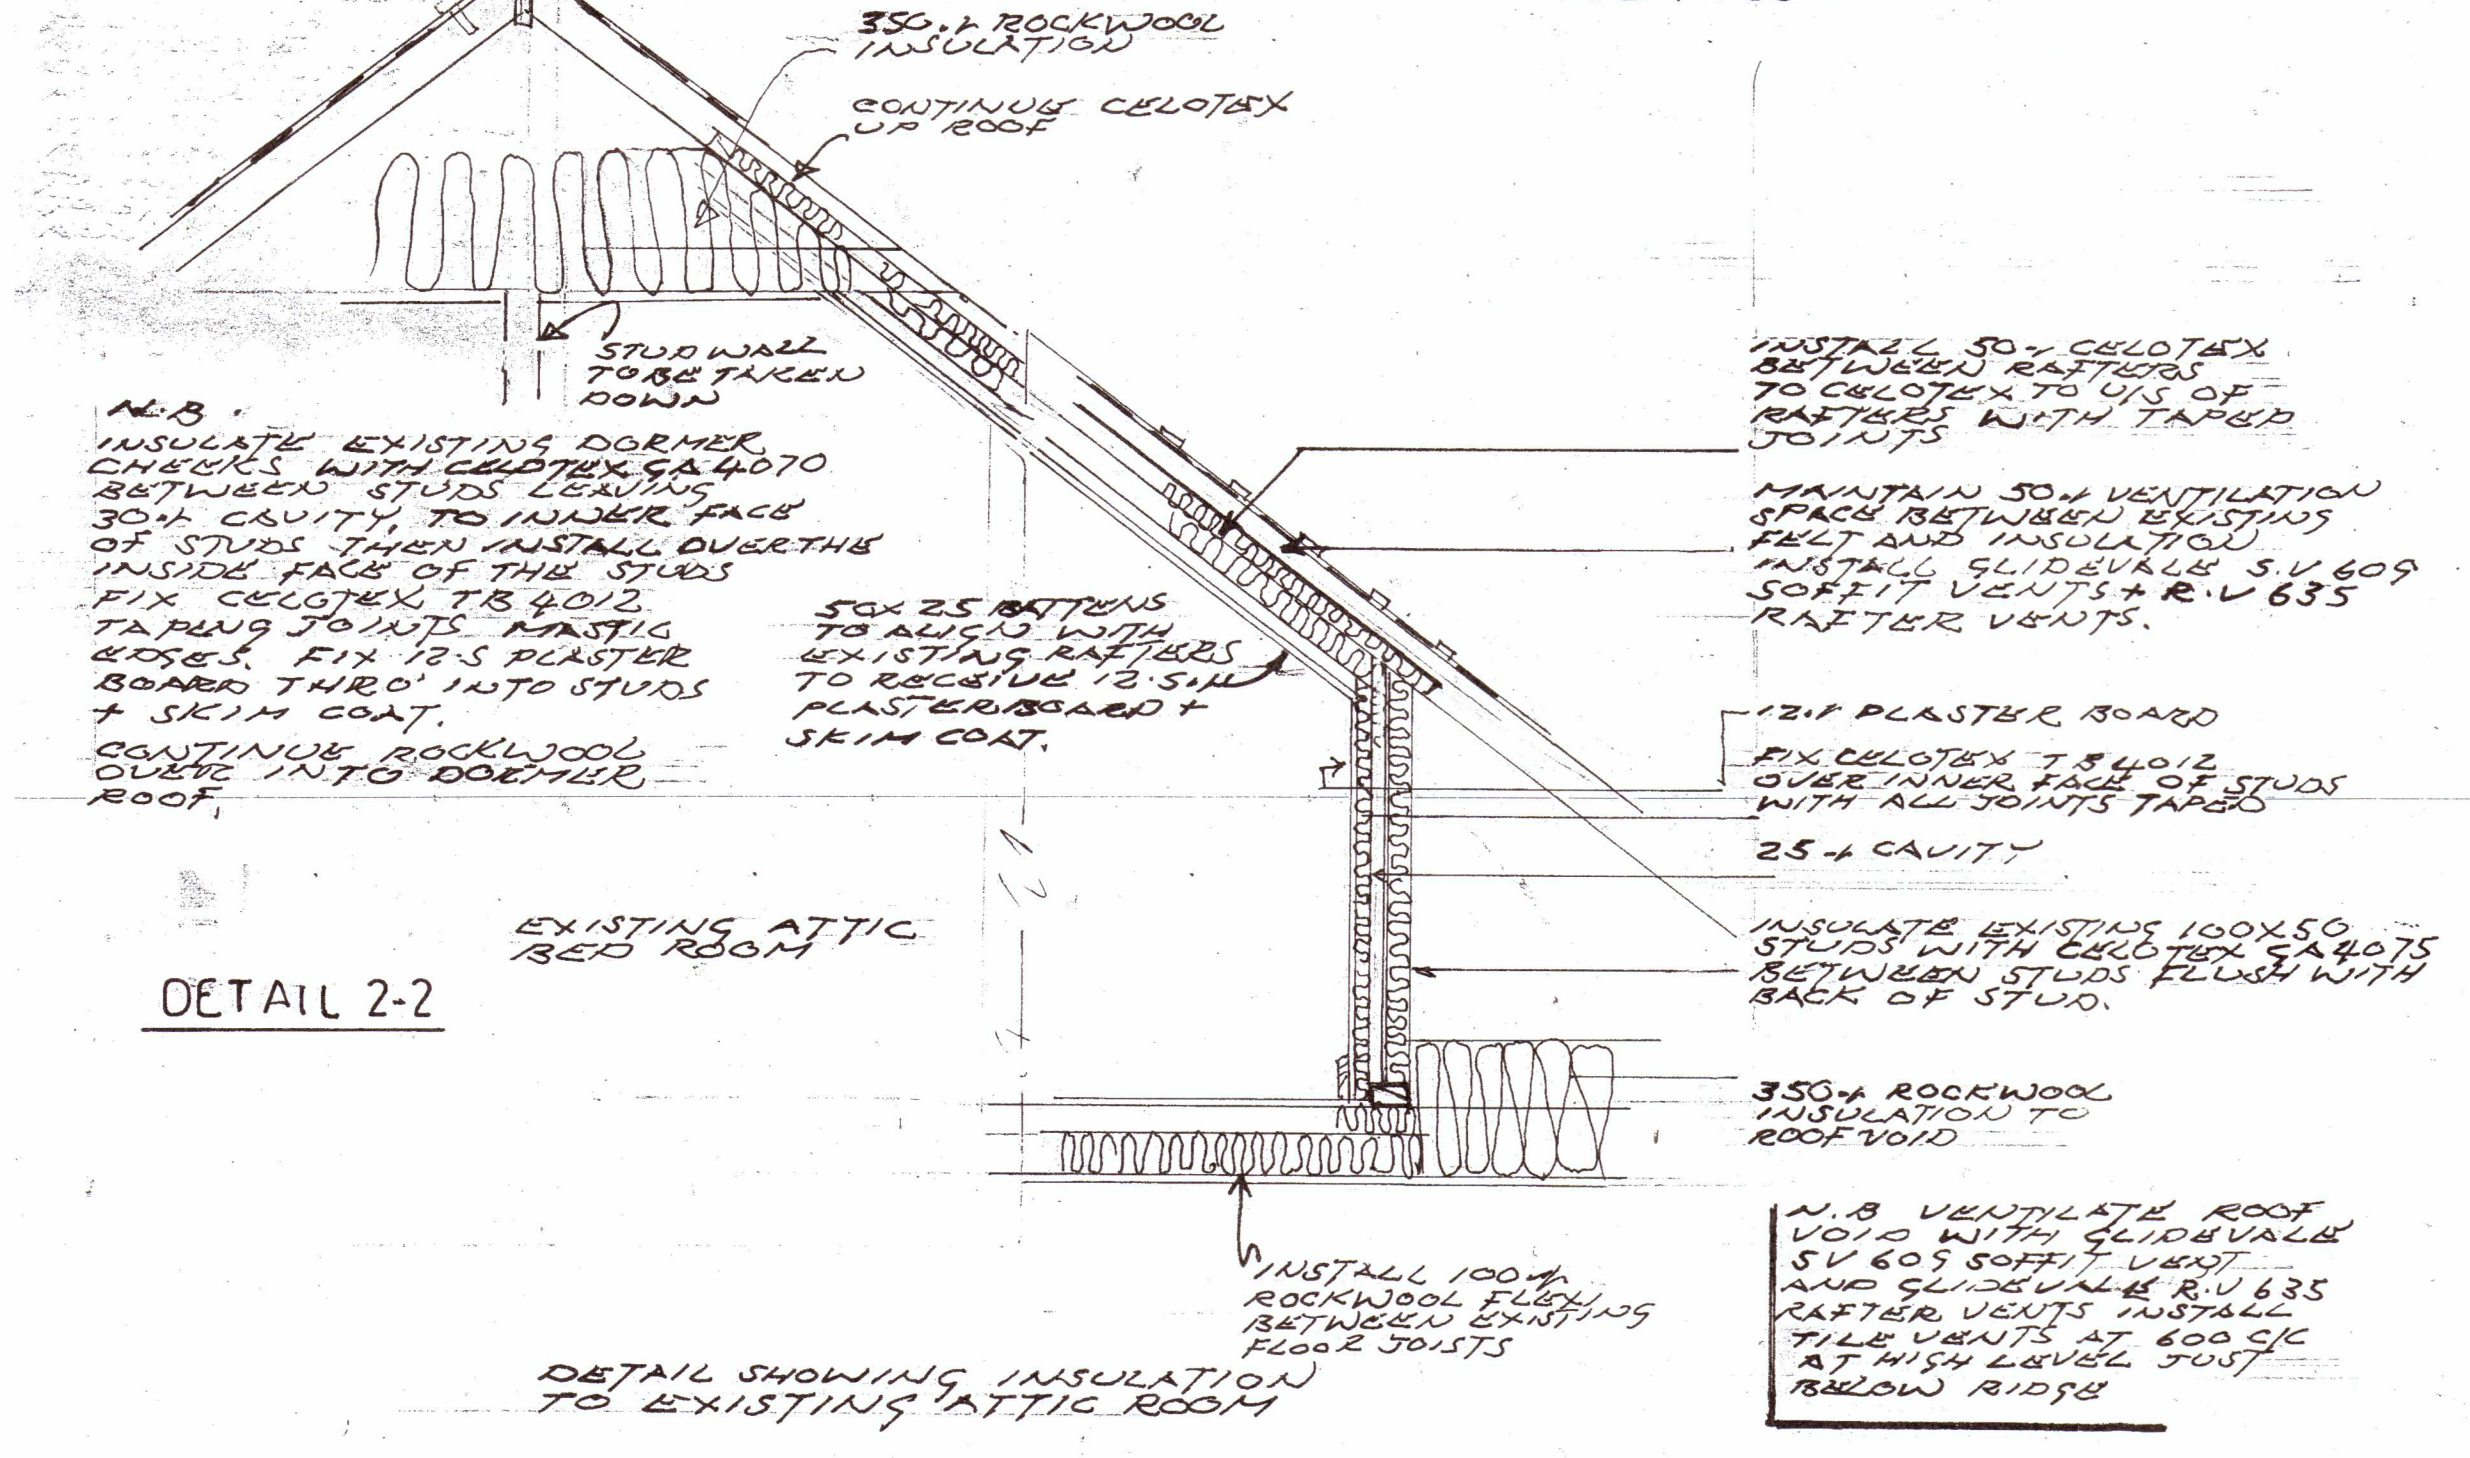 350.M ROCKWOOL
INSULATION
CONTINUE CELOTEX
UP ROOF
STUD WALL
TO BE TAKEN
DOWN
N.B.
INSULATE EXISTING DORMER
CHEEKS WITH CELOTEX GA 4070
BETWEEN STUDS LEAVING
30.M CAVITY, TO INNER FACE
OF STUDS THEN INSTALL OVER THE
INSIDE FACE OF THE STUDS
FIX CELOTEX TB 4012
TAPING JOINTS MASTIC
EDGES. FIX 12.5 PLASTER
BOARD THRO' INTO STUDS
+ SKIM COAT.
CONTINUE ROCKWOOL
OVER INTO DORMER
ROOF.
50X25 BATTENS
TO ALIGN WITH
EXISTING RAFTERS
TO RECEIVE 12.5.M
PLASTERBOARD +
SKIM COAT.
INSTALL 50.M CELOTEX
BETWEEN RAFTERS
TO CELOTEX TO U/S OF
RAFTERS WITH TAPED
JOINTS
MAINTAIN 50.M VENTILATION
SPACE BETWEEN EXISTING
FELT AND INSULATION
INSTALL GLIDEVALE S.V 609
SOFFIT VENTS + R.V 635
RAFTER VENTS.
12.M PLASTER BOARD
FIX CELOTEX TB4012
OVER INNER FACE OF STUDS
WITH ALL JOINTS TAPED
25.M CAVITY
INSULATE EXISTING 100X50
STUDS WITH CELOTEX GA4075
BETWEEN STUDS FLUSH WITH
BACK OF STUD.
350.M ROCKWOOL
INSULATION TO
ROOF VOID
EXISTING ATTIC
BED ROOM
DETAIL 2-2
INSTALL 100M
ROCKWOOL FLEXI
BETWEEN EXISTING
FLOOR JOISTS
N.B VENTILATE ROOF
VOID WITH GLIDEVALE
SV 609 SOFFIT VENT
AND GLIDEVALE R.V 635
RAFTER VENTS INSTALL
TILE VENTS AT 600 C/C
AT HIGH LEVEL JUST
BELOW RIDGE
DETAIL SHOWING INSULATION
TO EXISTING ATTIC ROOM